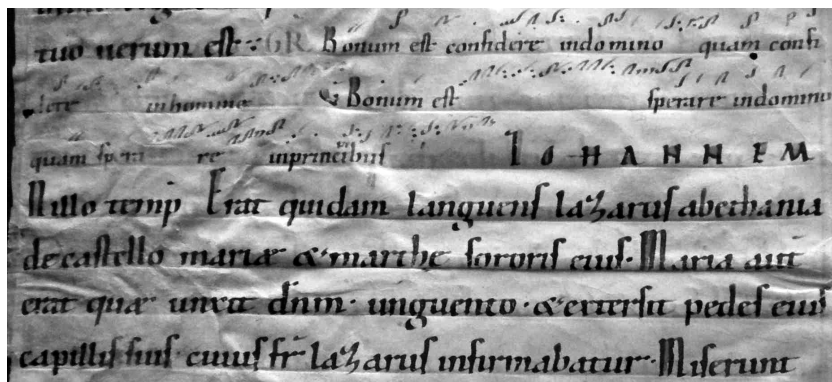 tuo uerum est GR Bonum est confidere indomino quam confi
dere inhomine
V Bonum est sperare indomino
quam spera re inprincibus IOHANNEM
Nillo temp Erat quidam languens lazarus abethania
de castello mariæ & marthe sororis eius. Maria aut
erat quæ unxit dnm. unguento. & extersit pedes eius
capillis suis. cuius fr lazarus infirmabatur. Miserunt